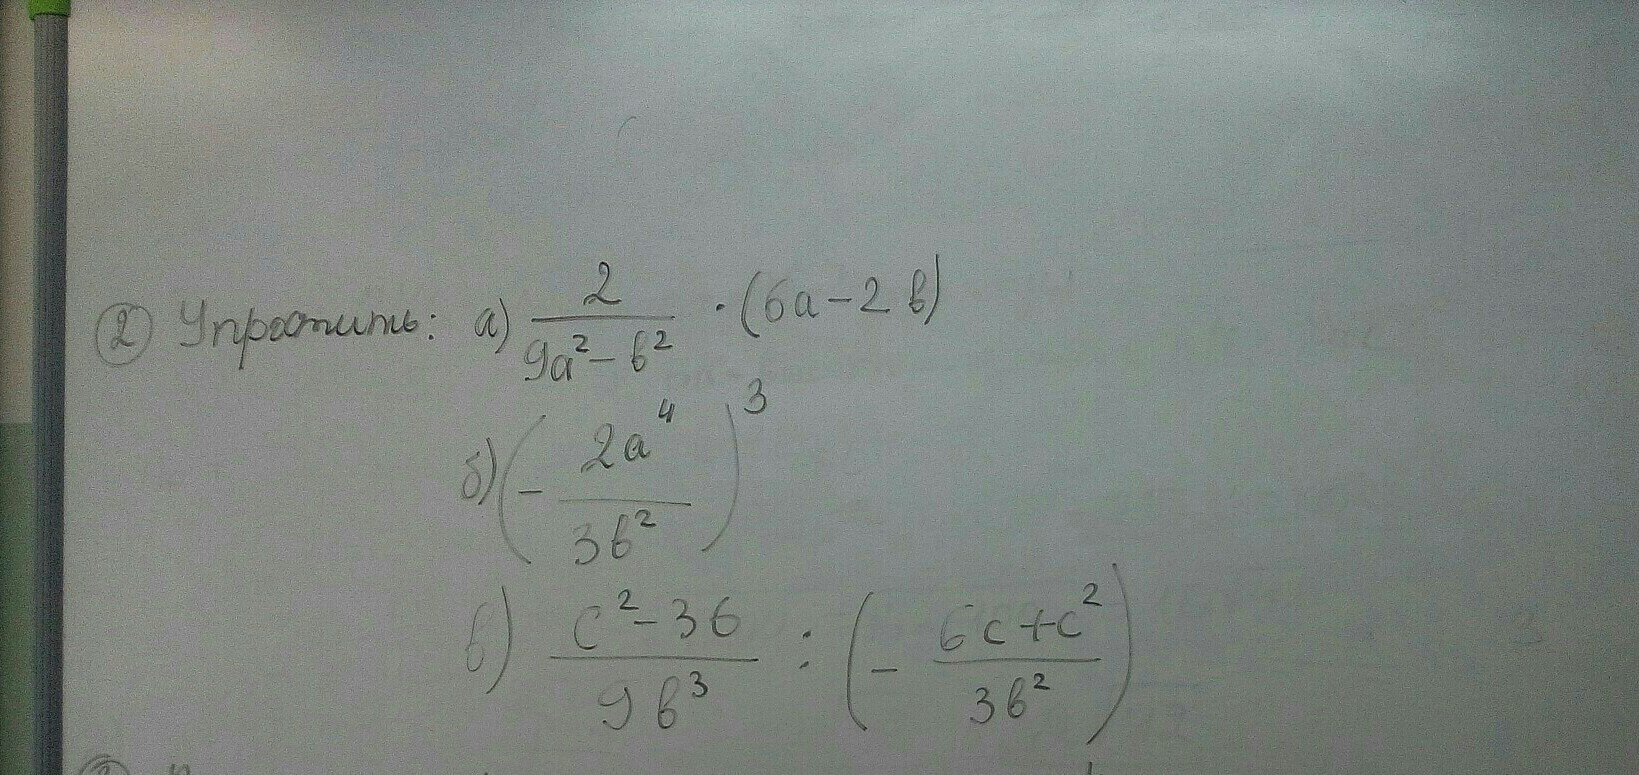 ② Упростить: а) 2/(9a² - b²) · (6a - 2b)
б) (- 2a⁴/3b²)³
в) (c² - 36)/9b³ : (- (6c + c²)/3b²)